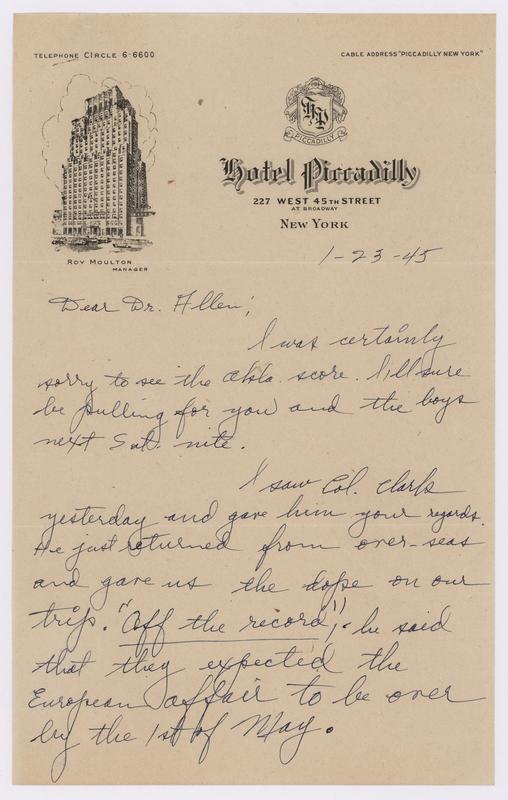 TELEPHONE CIRCLE 6-6600
CABLE ADDRESS "PICCADILLY NEW YORK"
HP
PICCADILLY
Hotel Piccadilly
227 WEST 45TH STREET
AT BROADWAY
NEW YORK
ROY MOULTON
MANAGER
1-23-45
Dear Dr. Allen;
I was certainly
sorry to see the Okla. score. I'll sure
be pulling for you and the boys
next Sat. nite.
I saw Col. Clark
yesterday and gave him your regards.
He just returned from over-seas
and gave us the dope on our
trip. "Off the record", he said
that they expected the
European affair to be over
by the 1st of May.